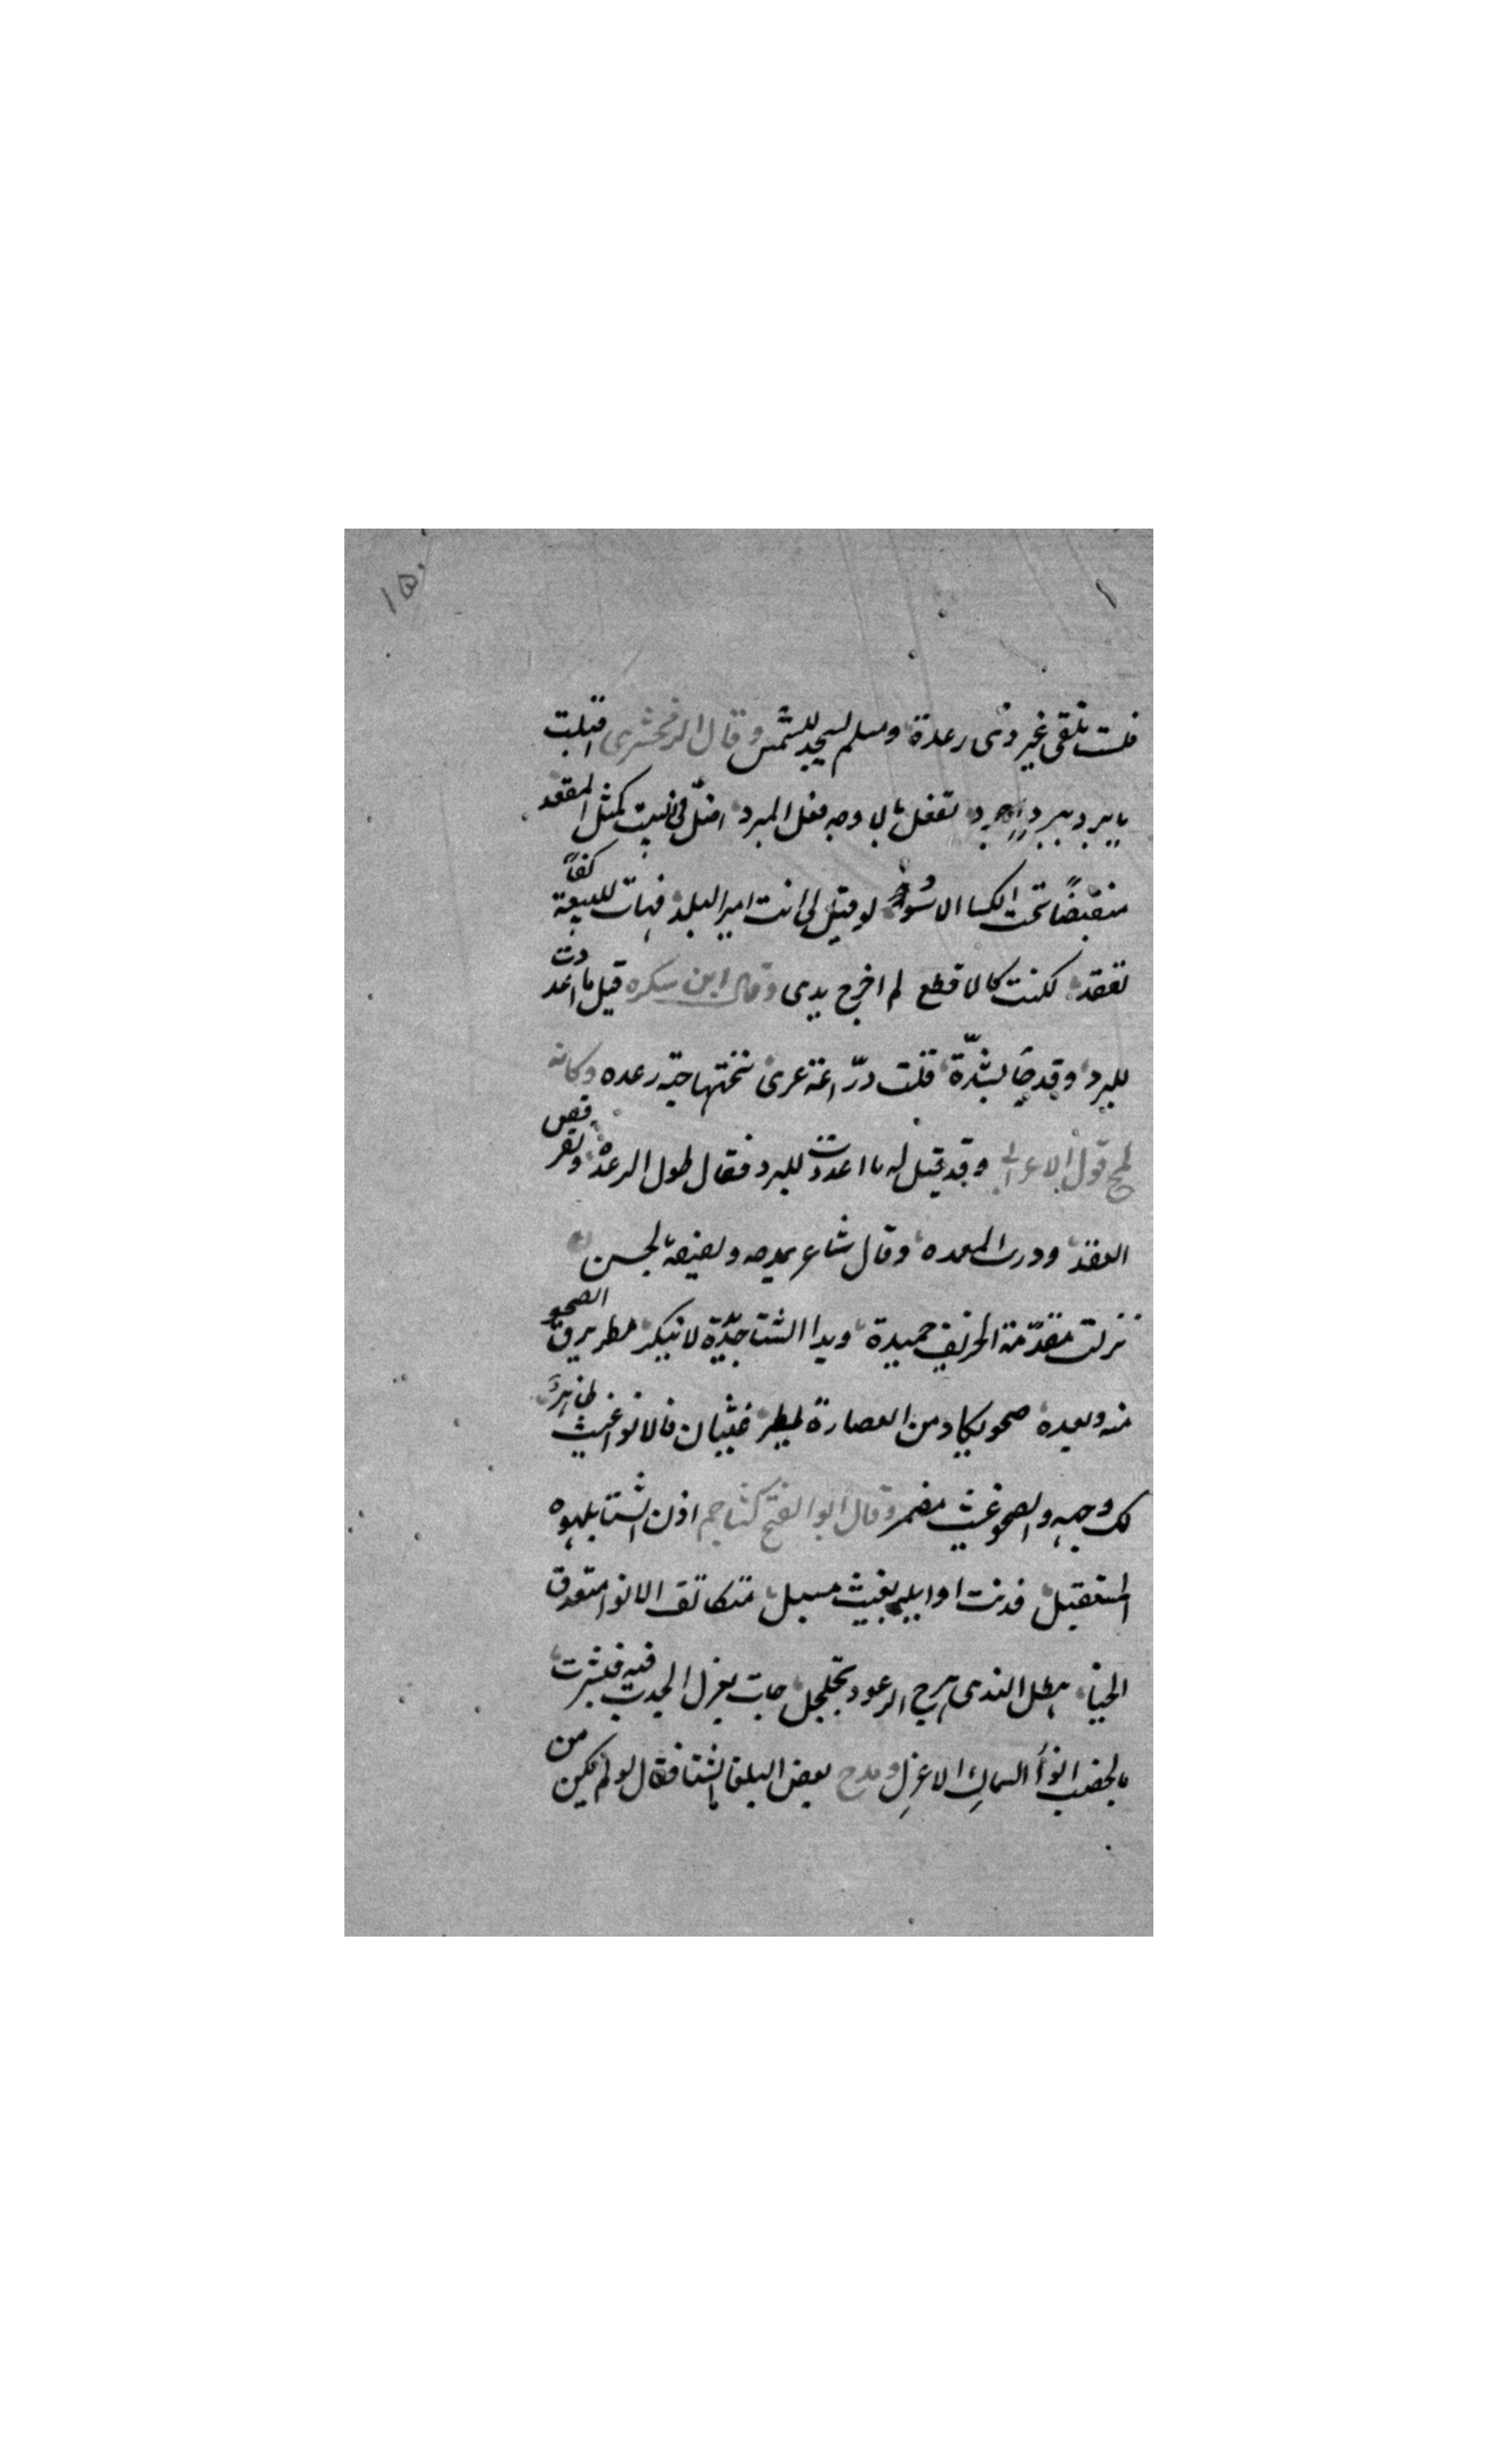 ١٥٠
فلست تلقى غير ذى رعدة ومسلم يسجد للشمس وقال الزمخشرى اقبلت
يا برد ببرد اجرد تفعل بالاوجه فعل المبرد اضل فى البيت كمثل المقعد
منقبضًا تحت الكسا الاسود لو قيل لى انت امير البلد فهات للبيعة كفًا
تعقد لكنت كالاقطع لم اخرج يدى وقال ابن سكره قيل ما اعددت
للبرد وقد جا بشدّة قلت درّاعة عرى تحتها جبة رعده وكانه
لمح قول الاعرابى وقد قيل له ما اعددت للبرد فقال طول الرعدة وتقرفص
القعدة وذرب المعده وقال شاعر يمدحه ويصفه بحسن
نزلت مقدّمة الخريف حميدة وبدا الشتا جدّة لا تنكر مطر يروق الصحو
منه وبعده صحو يكاد من الغضارة يمطر غيثان فالانوا غيث ظاهر
لك وجهه والصحو غيث مضمر وقال ابو الفتح كشاجم اذن الشتا بلهوه
المستقبل فدنت اوايله بغيث مسبل متكاثف الانوا مغدودق
الحيا هطل الندى هزج الرعود تجلجل جات بعزل الجدب فيه فبشرت
بالخصب انوأ السماك الاعزل ومدح بعض البلغا الشتا فقال لو لم يكن من